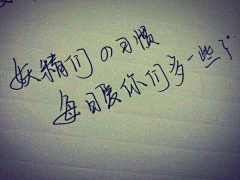 妖精们の习惯
每日爱你们多一些